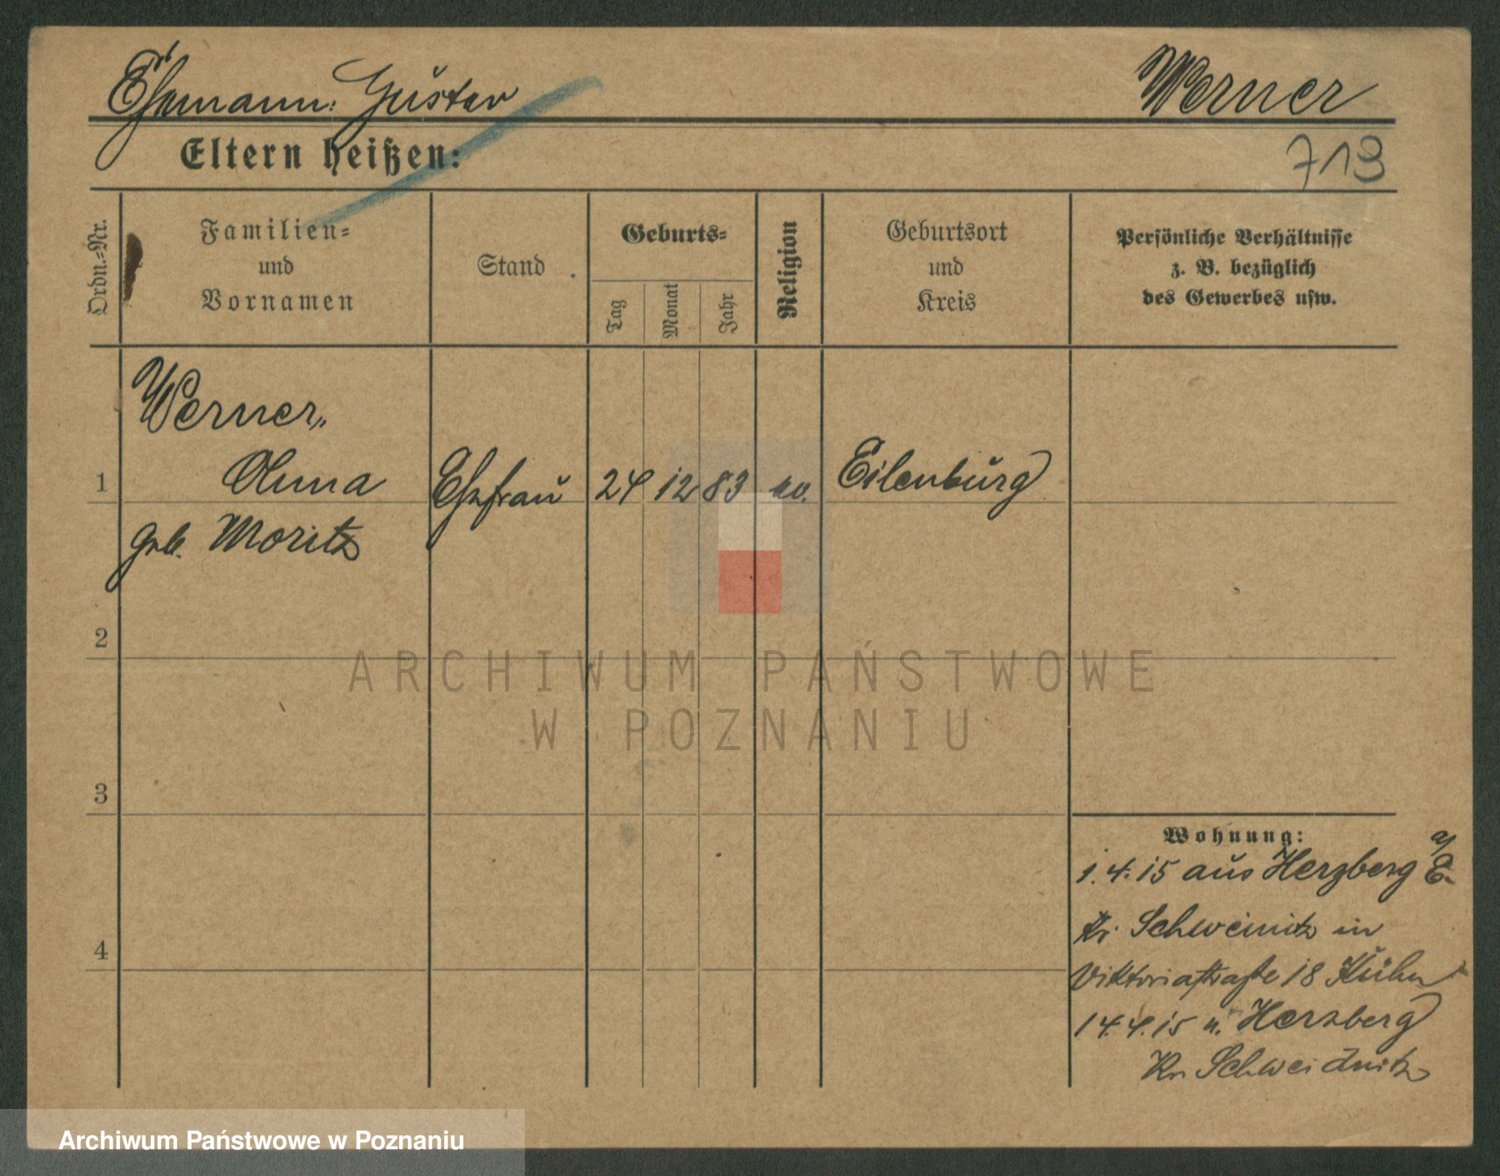 Ehemann: Gustav Werner
Eltern heißen:
719
Ordn.-Nr.
Familien-
und
Vornamen
Stand
Geburts-
Tag
Monat
Jahr
Religion
Geburtsort
und
Kreis
Persönliche Verhältnisse
z. B. bezüglich
des Gewerbes usw.
Werner,
1 Anna Ehefrau 24 12 83 ev. Eilenburg
geb. Moritz
2
3
4
Wohnung:
1.4.15 aus Herzberg a/E.
Kr. Schweinitz in
Viktoriastraße 18 Kühn
14.4.15 n. Herzberg
Kr. Schweidnitz
ARCHIWUM PAŃSTWOWE
W POZNANIU
Archiwum Państwowe w Poznaniu